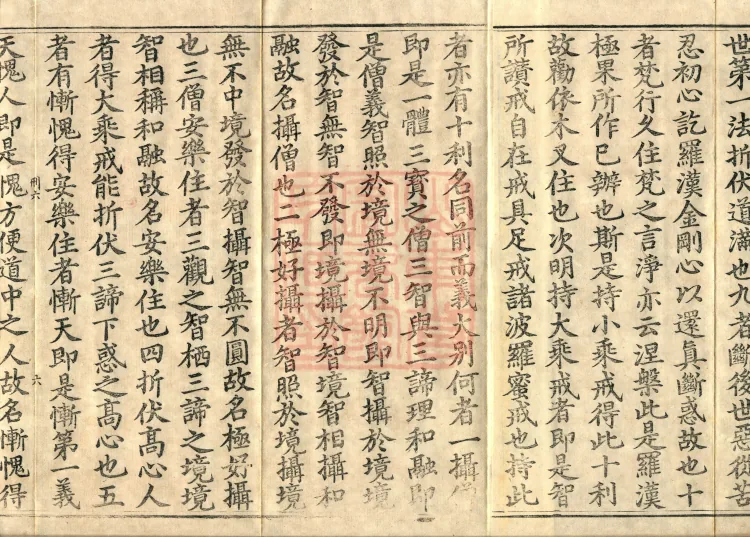 世第一法折伏道滿也九者斷後世惡從苦
忍初心訖羅漢金剛心以還眞斷惑故也十
者梵行久住梵之言淨亦云涅槃此是羅漢
極果所作已辦也斯是持小乘戒得此十利
故勸依木叉住也次明持大乘戒者即是智
所讚戒自在戒具足戒諸波羅蜜戒也持此
者亦有十利名同前而義大別何者一攝僧
即是一體三寶之僧三智與三諦理和融即
是僧義智照於境無境不明即智攝於境境
發於智無智不發即境攝於智境智相攝和
融故名攝僧也二極好攝者智照於境攝境
無不中境發於智攝智無不圓故名極好攝
也三僧安樂住者三觀之智栖三諦之境境
智相稱和融故名安樂住也四折伏高心人
者得大乘戒能折伏三諦下惑之高心也五
者有慚愧得安樂住者慚天即是慚第一義
天愧人即是愧方便道中之人故名慚愧得
六